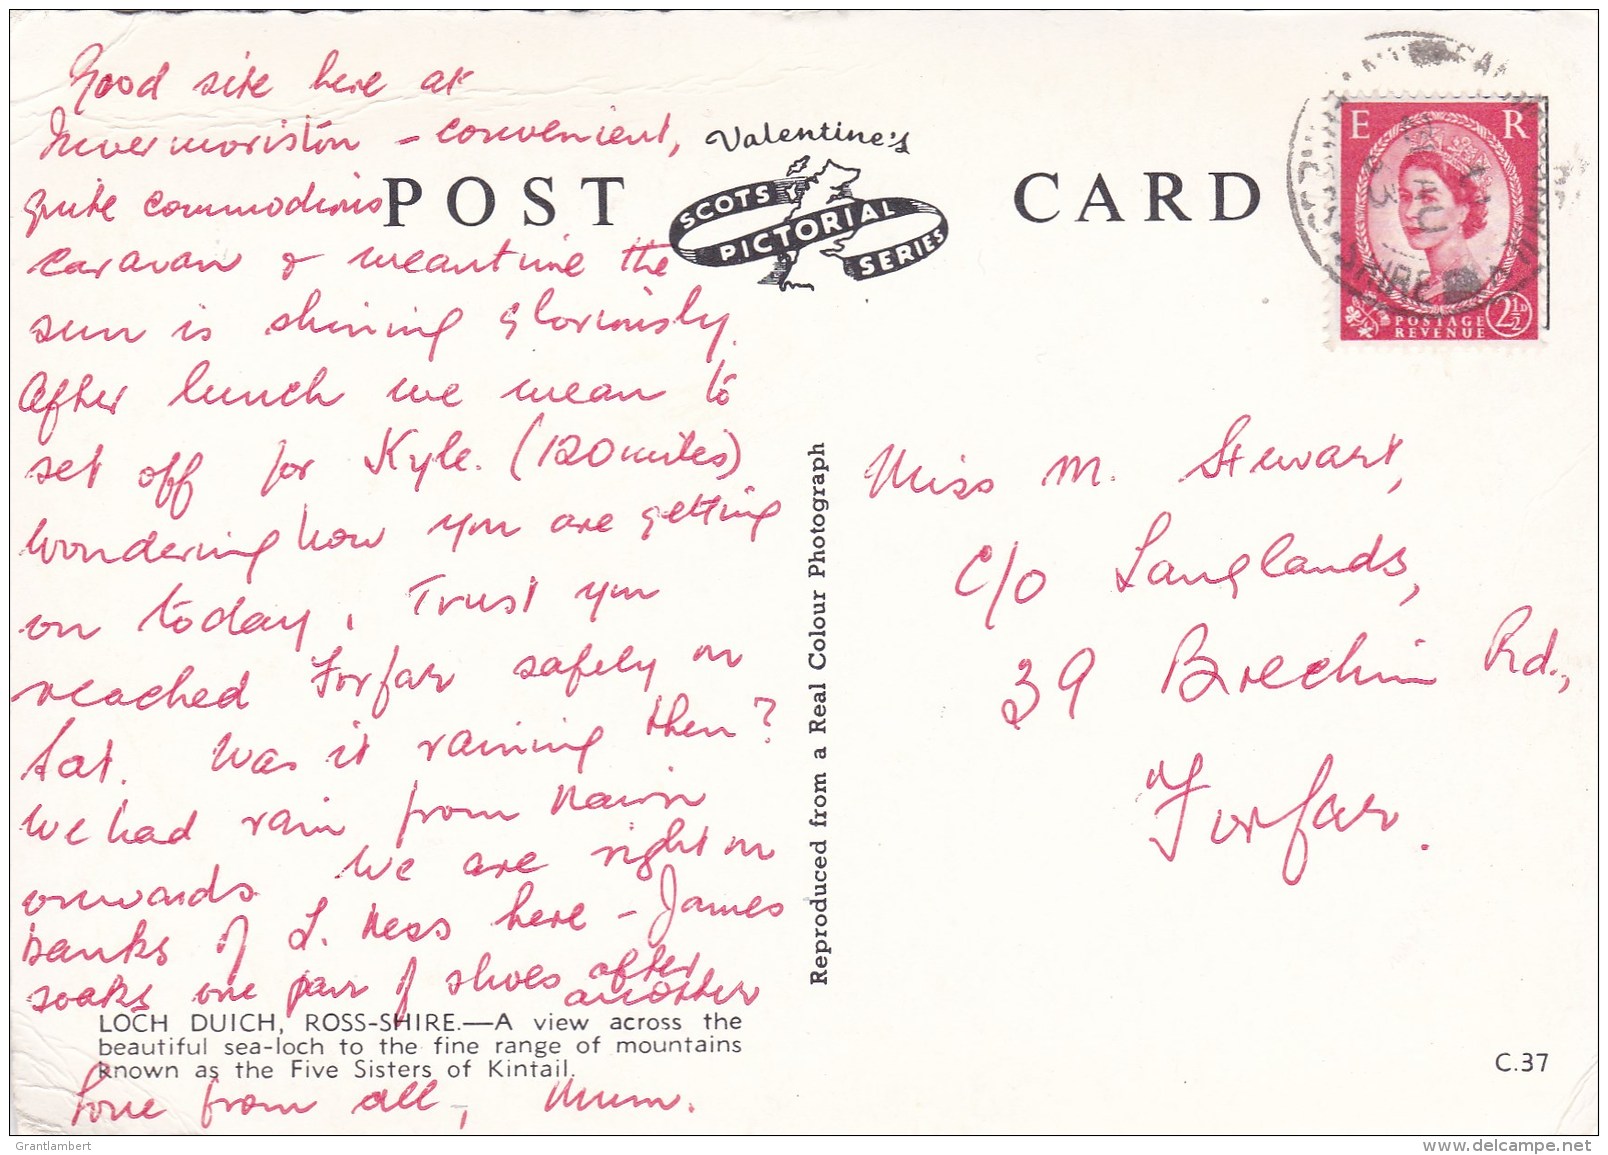 Good site here at
Invermoriston - convenient,
quite commodious
caravan & meantime the
sun is shining gloriously.
After lunch we mean to
set off for Kyle. (120 miles)
Wondering how you are getting
on today. Trust you
reached Forfar safely on
Sat. Was it raining then?
We had rain from Nairn
onwards. We are right on
banks of L. Ness here - James
soaks one pair of shoes after
another
Love from all, Mum.
POST CARD
Valentine's
SCOTS
PICTORIAL
SERIES
LOCH DUICH, ROSS-SHIRE.—A view across the
beautiful sea-loch to the fine range of mountains
known as the Five Sisters of Kintail.
Reproduced from a Real Colour Photograph
E R
POSTAGE
REVENUE
2½D
SHIRE
Miss M. Stewart,
c/o Langlands,
39 Brechin Rd.,
Forfar.
C.37
Grantlambert
www.delcampe.net